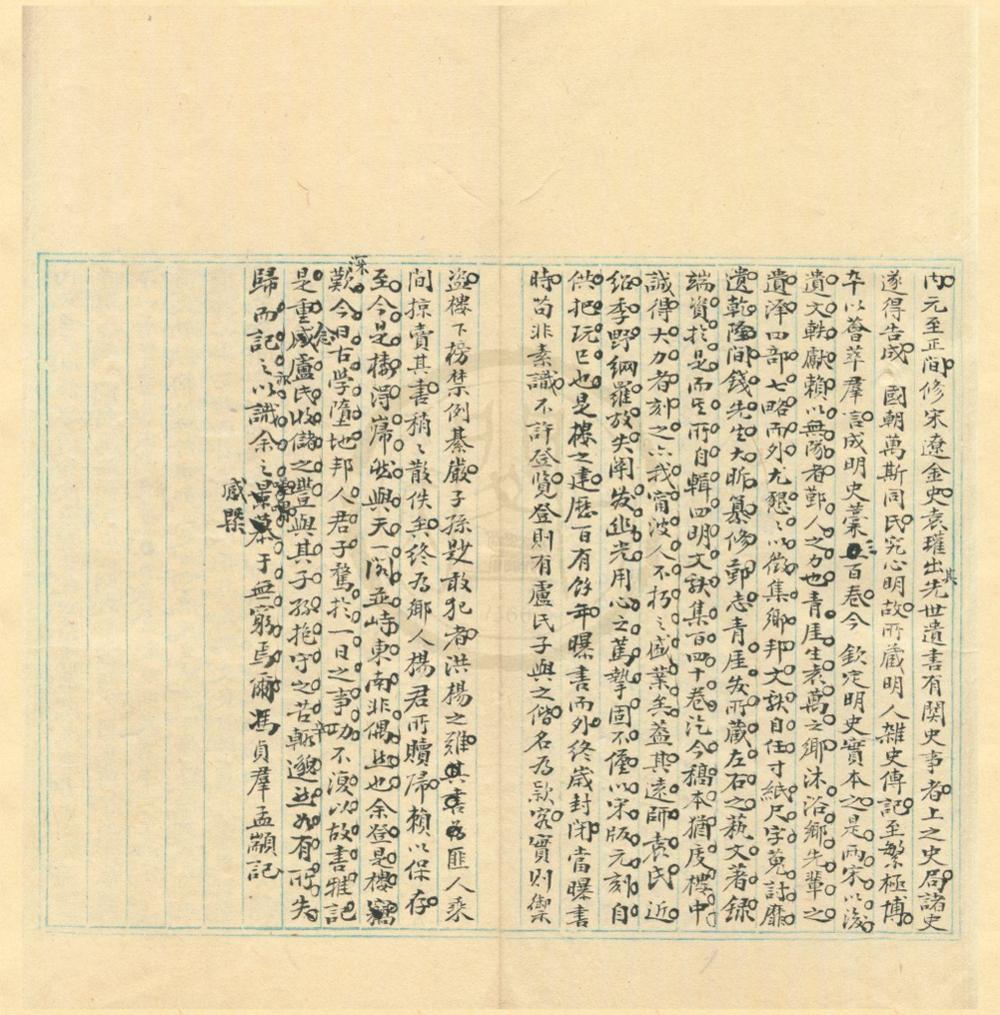 内元至正間修宋遼金史袁瓘出其先世遺書有関史事者上之史局諸史
遂得告成國朝萬斯同氏究心明故所蔵明人雑史傳記至繁極博
卒以薈萃羣言成明史藁三百卷今欽定明史實本之是兩宋以後
遺文軼獻賴以無隊者鄞人之力也青厓生袁萬之鄉沐浴鄉先輩之
遺澤四部七略而外尤懇〻以徵集鄉邦文獻自任寸紙尺字蒐討靡
遺乾隆間錢先生大昕纂修鄞志青厓發所蔵左右之蓺文著録
端資扵是而其所自輯四明文献集百四十巻汔今稿本猶庋樓中
誠得大力者刻之亦我甯波人不朽之盛業矣葢其遠師袁氏近
紹季野網羅放失闡发幽光用心之篤摯固不僅以宋版元刻自
供把玩已也是樓之建歷百有餘年曝書而外終歲封閉當曝書
時苟非素識不許登覽登則有盧氏子與之偕名為欵客實則禦
盜樓下榜禁例綦嚴子孫尠敢犯者洪楊之難匪人乘
間掠賣其書稍〻散佚矣終為鄉人楊君所贖歸賴以保存
至今是樓得巋然與天一閣並峙東南非偶然也余登是樓竊
深歎今日古學墮地邦人君子騖扵一日之事功不復以故書雅記
是重感念盧氏收儲之豐與其子孙抱守之苦輒邈然如有所失
歸而記之以識余之感槩于無窮焉爾馮貞羣孟顓記